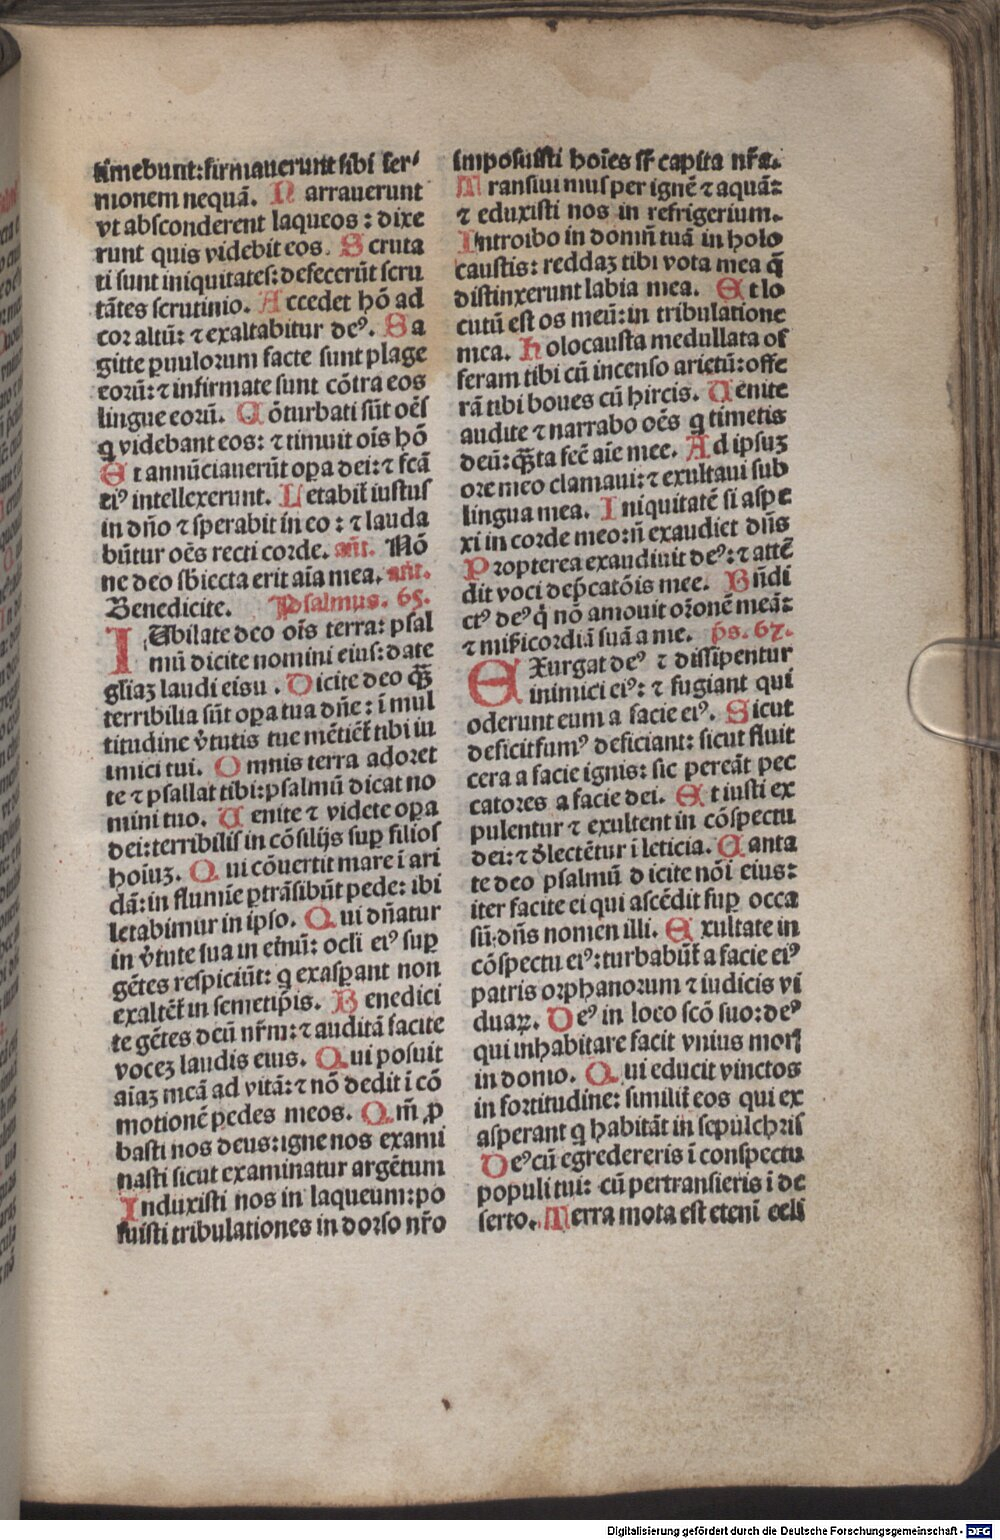 timebunt: firmauerunt sibi ser⸗
monem nequā. Narrauerunt
vt absconderent laqueos: dixe
runt quis videbit eos. Scruta
ti sunt iniquitates: defecerūt scru
tātes scrutinio. Accedet hō ad
cor altū: ⁊ exaltabitur deꝰ. Sa
gitte ꝑuulorum facte sunt plage
eorū: ⁊ infirmate sunt cōtra eos
lingue eorū. Cōturbati sūt oēs
q videbant eos: ⁊ timuit oīs hō
Et annūciauerūt oꝑa dei: ⁊ fcā
eiꝰ intellexerunt. Letabiť iustus
in dño ⁊ sperabit in eo: ⁊ lauda
būtur oēs recti corde. añt. Nō
ne deo sbiecta erit aīa mea. añt.
Benedicite. Psalmus. 65.
IUbilate deo oīs terra: psal
mū dicite nomini eius: date
gliaꝫ laudi eius. Dicite deo qꝫ̄
terribilia sūt oꝑa tua dñe: ī mul
titudine v̄tutis tue mētiēť tibi in
imici tui. Omnis terra adoret
te ⁊ psallat tibi: psalmū dicat no
mini tuo. Uenite ⁊ videte oꝑa
dei: terribilis in cōsilijs suꝑ filios
hoīuꝫ. Qui cōuertit mare ī ari
dā: in flumīe ꝑtrāsibūt pede: ibi
letabimur in ipso. Qui dñatur
in v̄tute sua in etnū: ocli eiꝰ suꝑ
gētes respiciūt: q exasꝑant non
exaltēť in semetip̄is. Benedici
te gētes deū nr̄m: ⁊ auditā facite
voceꝫ laudis eius. Qui posuit
aīaꝫ meā ad vitā: ⁊ nō dedit ī cō
motionē pedes meos. Qm̄ ꝓ
basti nos deus: igne nos exami
nasti sicut examinatur argētum
Induxisti nos in laqueum: po
suisti tribulationes in dorso nr̄o
imposuisti hoīes sr̄ capita nr̄a.
Transiuimus per ignē ⁊ aquā:
⁊ eduxisti nos in refrigerium.
Introibo in domū tuā in holo
caustis: reddaꝫ tibi vota mea q̄
distinxerunt labia mea. Et lo
cutū est os meū: in tribulatione
mea. Holocausta medullata of
feram tibi cū incenso arietū: offe
rā tibi boues cū hircis. Uenite
audite ⁊ narrabo oēs q timetis
deū: qꝫ̄ta fec̄ aīe mee. Ad ipsuꝫ
ore meo clamaui: ⁊ exultaui sub
lingua mea. Iniquitatē si aspe
xi in corde meo: ñ exaudiet dñs
Propterea exaudiuit deꝰ: ⁊ attē
dit voci dep̄catōis mee. Bñdi
ctꝰ deꝰ q̇ nō amouit or̄onē meā:
⁊ mīẜicordiā suā a me. ps. 67.
EXurgat deꝰ ⁊ dissipentur
inimici eiꝰ: ⁊ fugiant qui
oderunt eum a facie eiꝰ. Sicut
deficit fumꝰ deficiant: sicut fluit
cera a facie ignis: sic pereāt pec
catores a facie dei. Et iusti ex
pulentur ⁊ exultent in cōspectu
dei: ⁊ d̓lectētur ī leticia. Canta
te deo psalmū dicite nōi eius:
iter facite ei qui ascēdit suꝑ occa
sū: dñs nomen illi. Exultate in
cōspectu eiꝰ: turbabūť a facie eiꝰ
patris orphanorum ⁊ iudicis vi
duaꝝ. Deꝰ in loco scō suo: deꝰ
qui inhabitare facit vnius moris
in domo. Qui educit vinctos
in fortitudine: similiť eos qui ex
asperant q habitāt in sepulchris
Deꝰ cū egredereris ī conspectu
populi tui: cū pertransieris ī de
serto. Terra mota est etenī celi
Digitalisierung gefördert durch die Deutsche Forschungsgemeinschaft - DFG